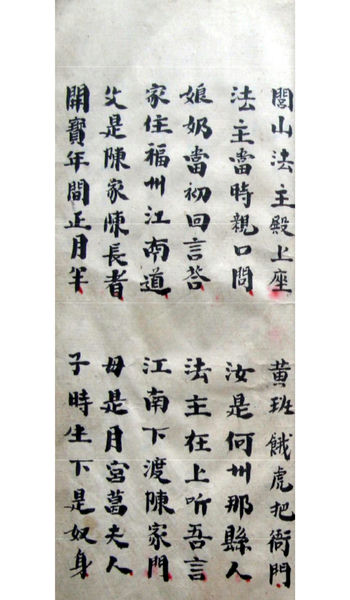 閭山法主殿上座 黄班餓虎把衙門
法主當時親口問 汝是何州那縣人
娘奶當初回言答 法主在上听吾言
家住福州江南道 江南下渡陳家門
父是陳家陳長者 母是月宮葛夫人
開寳年間正月半 子時生下是奴身